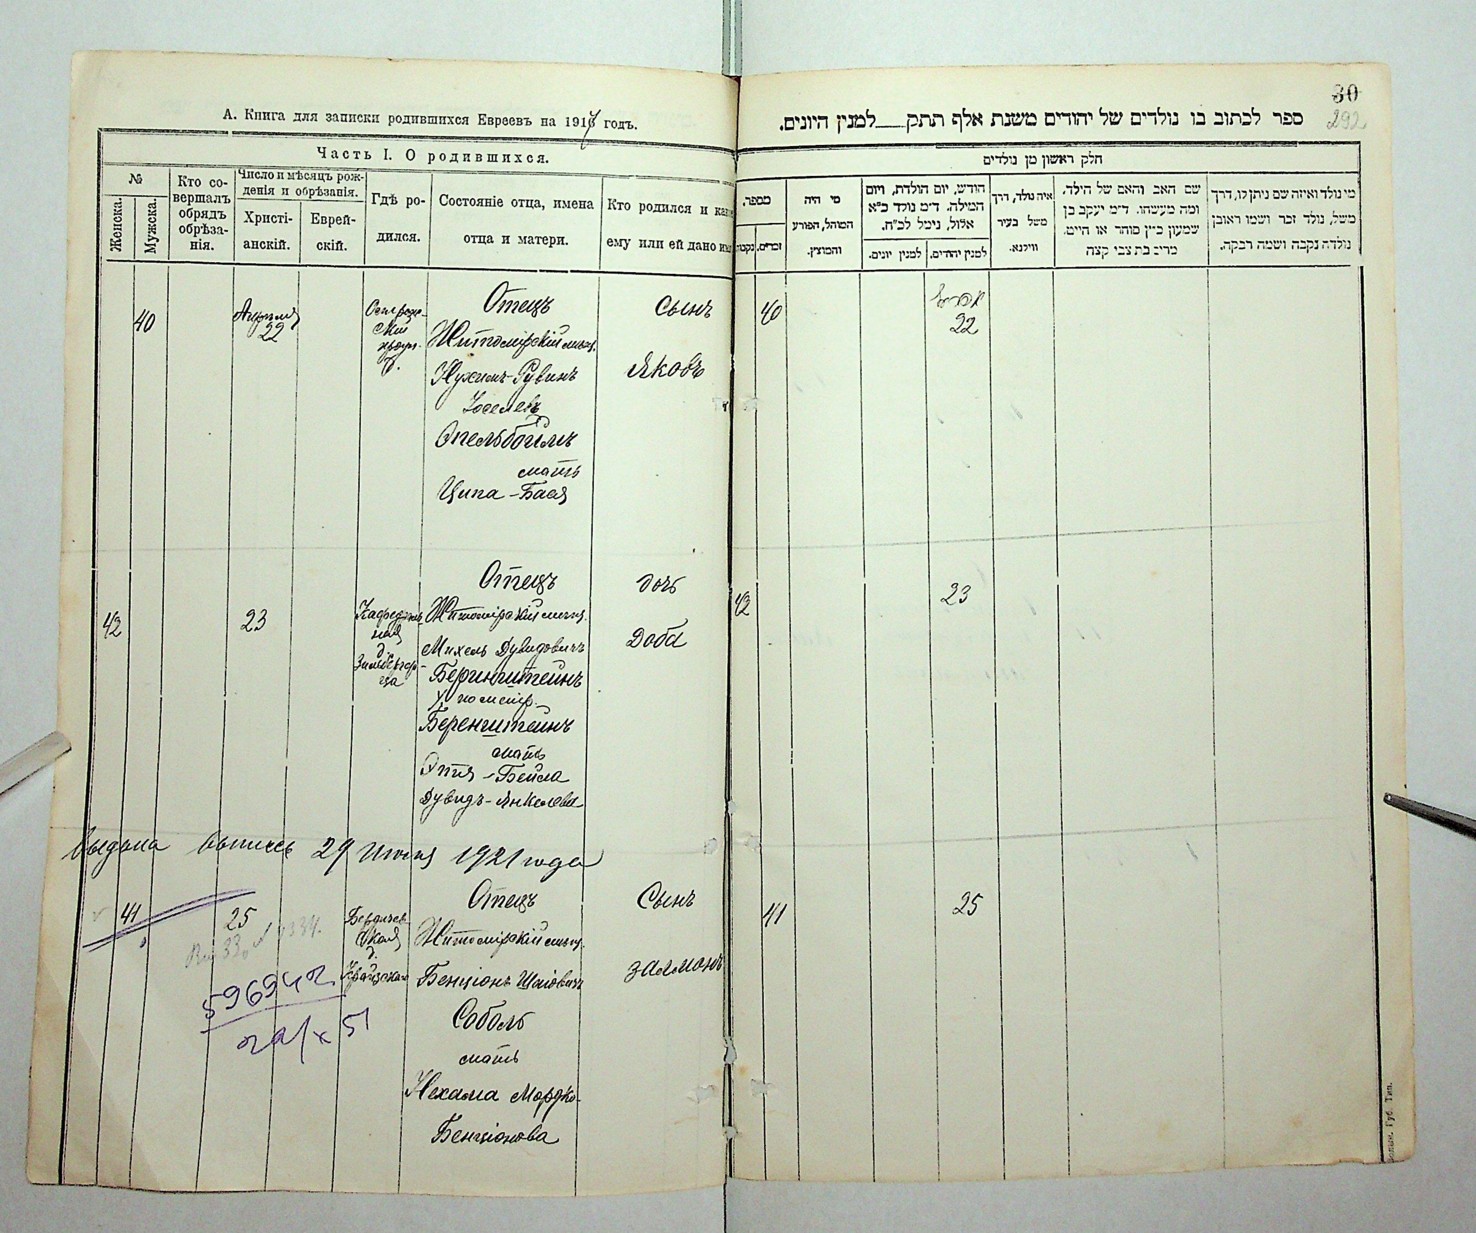 А. Книга для записки родившихся Евреевъ на 1917 годъ.
Часть I. О родившихся.
№
Женска.
Мужска.
Кто совершалъ обрядъ обрѣзанія.
Число и мѣсяцъ рожденія и обрѣзанія.
Христіанскій.
Еврейскій.
Гдѣ родился.
Состояніе отца, имена отца и матери.
Кто родился и какое ему или ей дано имя
40
Апрѣля
22
Отецъ
Житомірскій мѣщ.
Нухимъ-Рувинъ
Іоселевъ
Опельбоймъ
мать
Ципа-Бася
сынъ
Яковъ
42
23
Отецъ
Житомірскій мѣщ.
Михель Дувидовичъ
Беринштейнъ
Беренштейнъ
мать
Бейла
Дувидъ-Янкелева
дочь
Доба
Выдана выпись 29 Июня 1921 года
41
25
Бердичевская
д.
Отецъ
Житомірскій мѣщ.
Бенціонъ Шаіовичъ
Соболь
мать
Нехама Мордко-
Бенціонова
Сынъ
Залмонъ
596942
30
292
ספר לכתוב בו נולדים של יהודים משנת אלף תתק__למנין היונים.
חלק ראשון מן נולדים
מספר,
זכרים,
נקבות
מי היה המוהל, הפורע והמוצץ.
הודש, יום הולדת, ויום המילה. ד״מ נולד כ״א אלול, נימל לכ״ח.
למנין יהודים.
למנין יונים.
איה נולד, דרך משל בעיר ווילנא.
שם האב והאם של הילד. ומה מעשהו. ד״מ יעקב בן שמעון כ״ץ סוחר או חייט. מרים בת צבי קצה
מי נולד ואיזה שם ניתן לו, דרך משל, נולד זכר ושמו ראובן נולדה נקבה ושמה רבקה.
40
22
42
23
41
25
Губ. Тип.